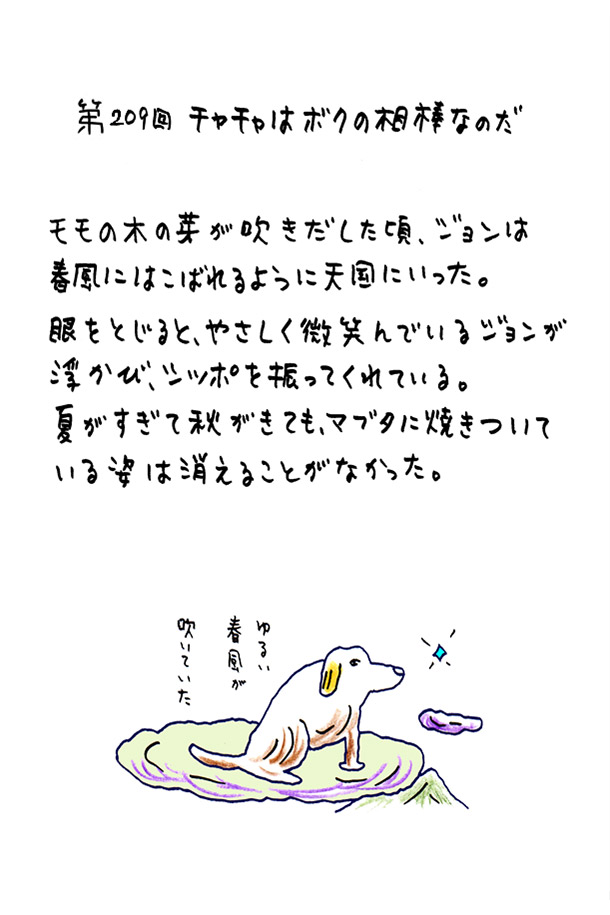 第209回 チャチャはボクの相棒なのだ
モモの木の芽が吹きだした頃、ジョンは
春風にはこばれるように天国にいった。
眼をとじると、やさしく微笑んでいるジョンが
浮かび、シッポを振ってくれている。
夏がすぎて秋がきても、マブタに焼きついて
いる姿は消えることがなかった。
ゆるい
春風が
吹いていた